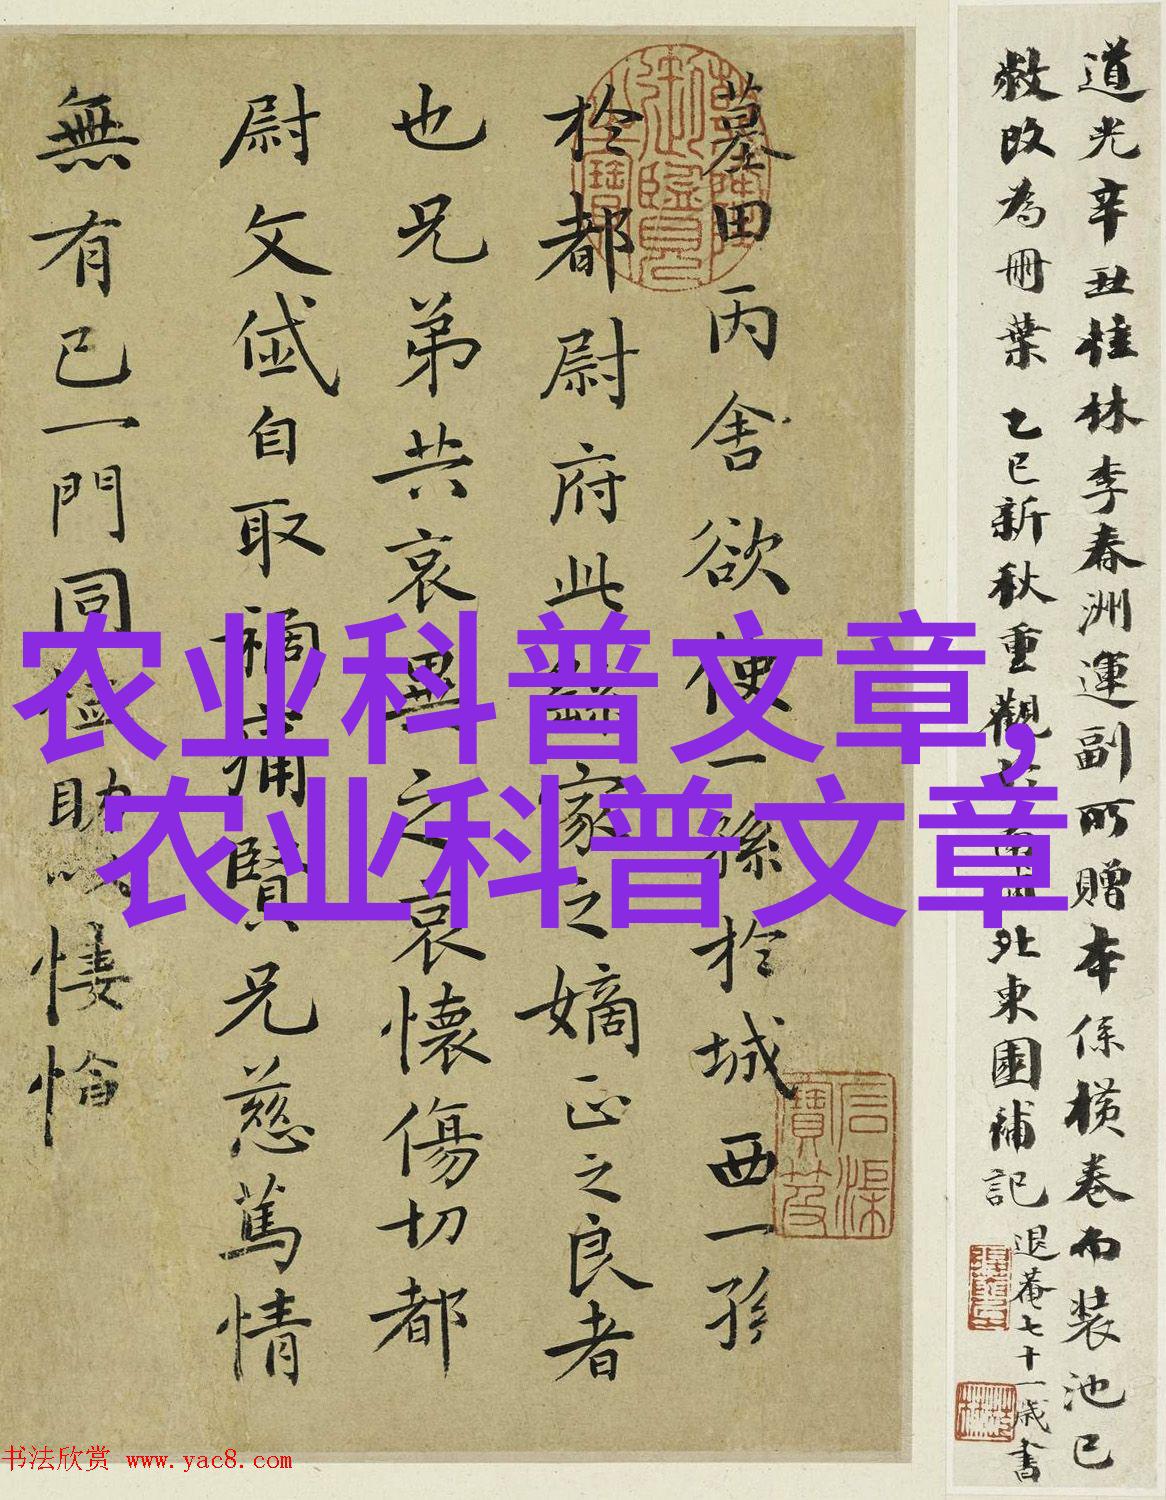 道光辛丑桂林李春洲運副所贈本係橫卷而裝池已
敝改為冊葉 乙巳新秋重觀於南北東園補記
退菴七十一歲書
墓田丙舍欲使一孫於城西一孫
於都尉府此繇家之嫡正之良者
也兄弟共哀異之哀懷傷切都
尉文岱自取禍痛賢兄慈篤情
無有已一門同恤助以悽愴
农业科普文章,
农业科普文章
书法欣赏 www.yac8.com